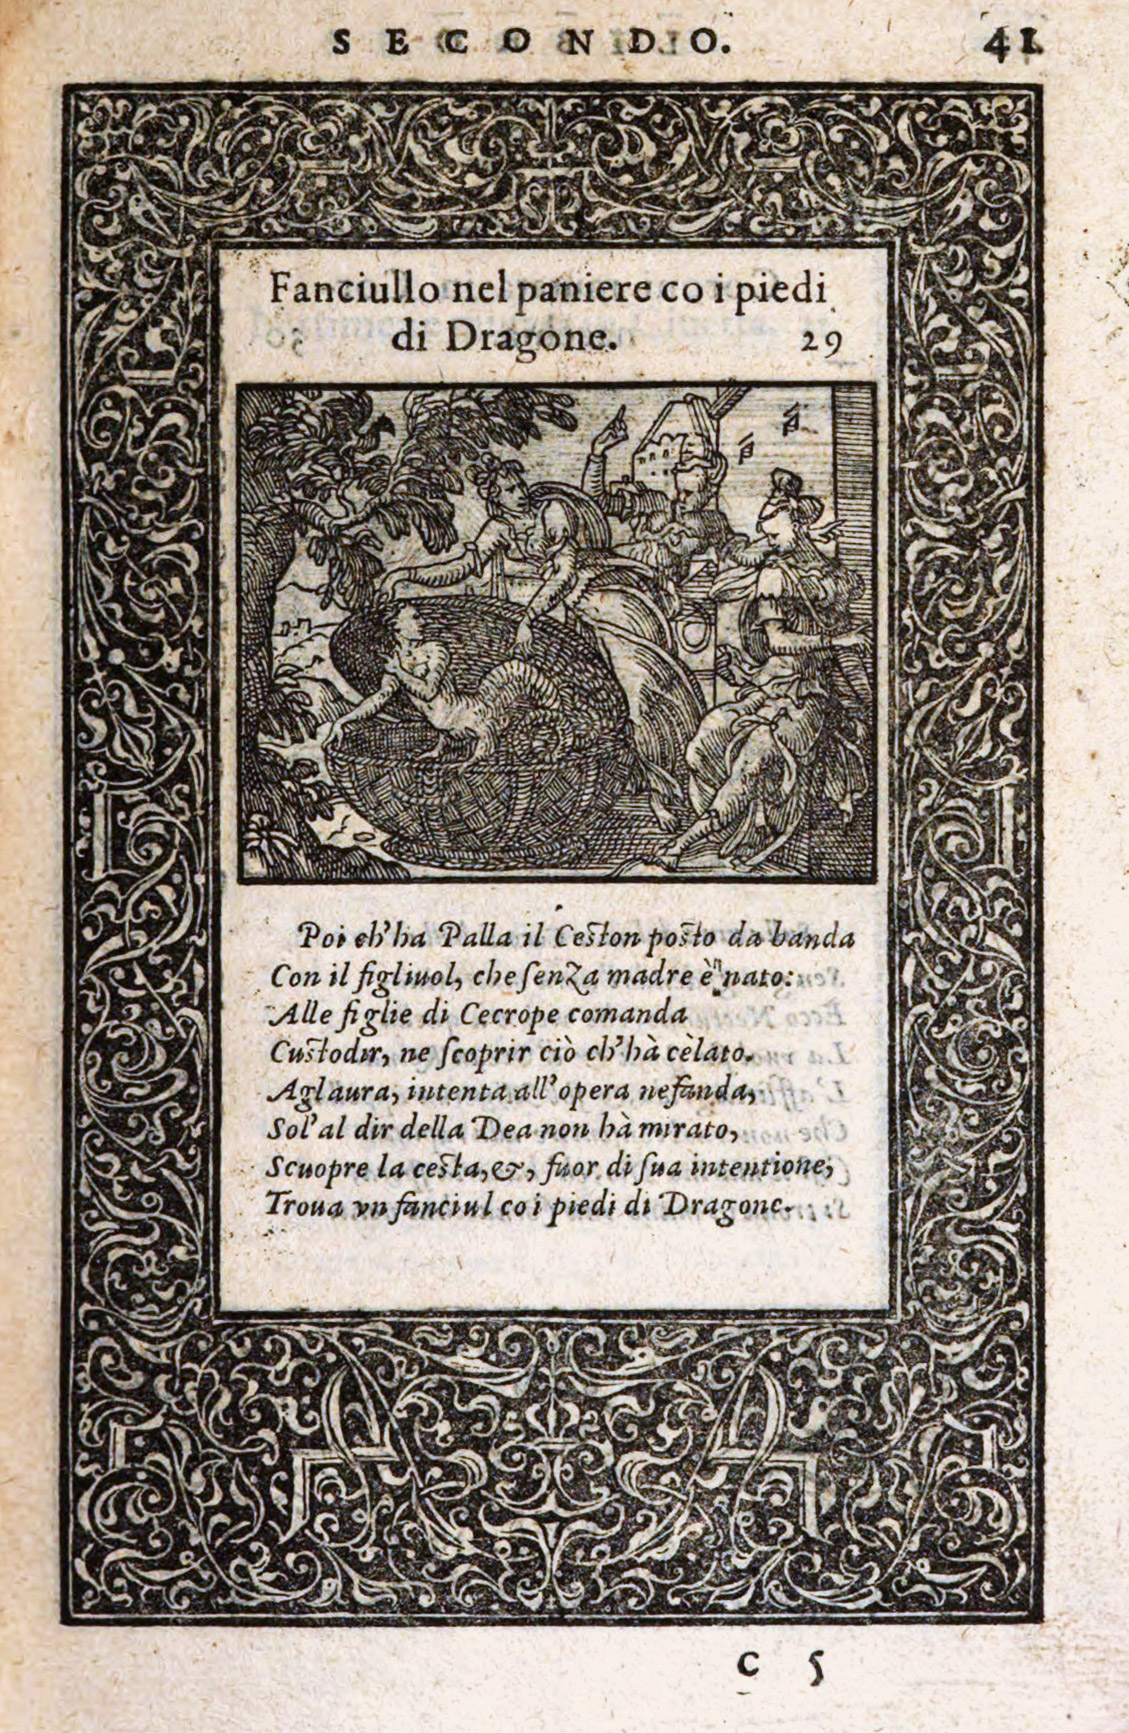 SECONDO. 41
Fanciullo nel paniere co i piedi
di Dragone. 29
Poi ch'ha Palla il Ceston posto da banda
Con il figliuol, che ſenza madre è nato:
Alle figlie di Cecrope comanda
Custodir, ne ſcoprir ciò ch'hà cèlato.
Aglaura, intenta all'opera nefanda,
Sol'al dir della Dea non hà mirato,
Scuopre la cesta, &, fuor di ſua intentione,
Troua vn fanciul co i piedi di Dragone.
C 5